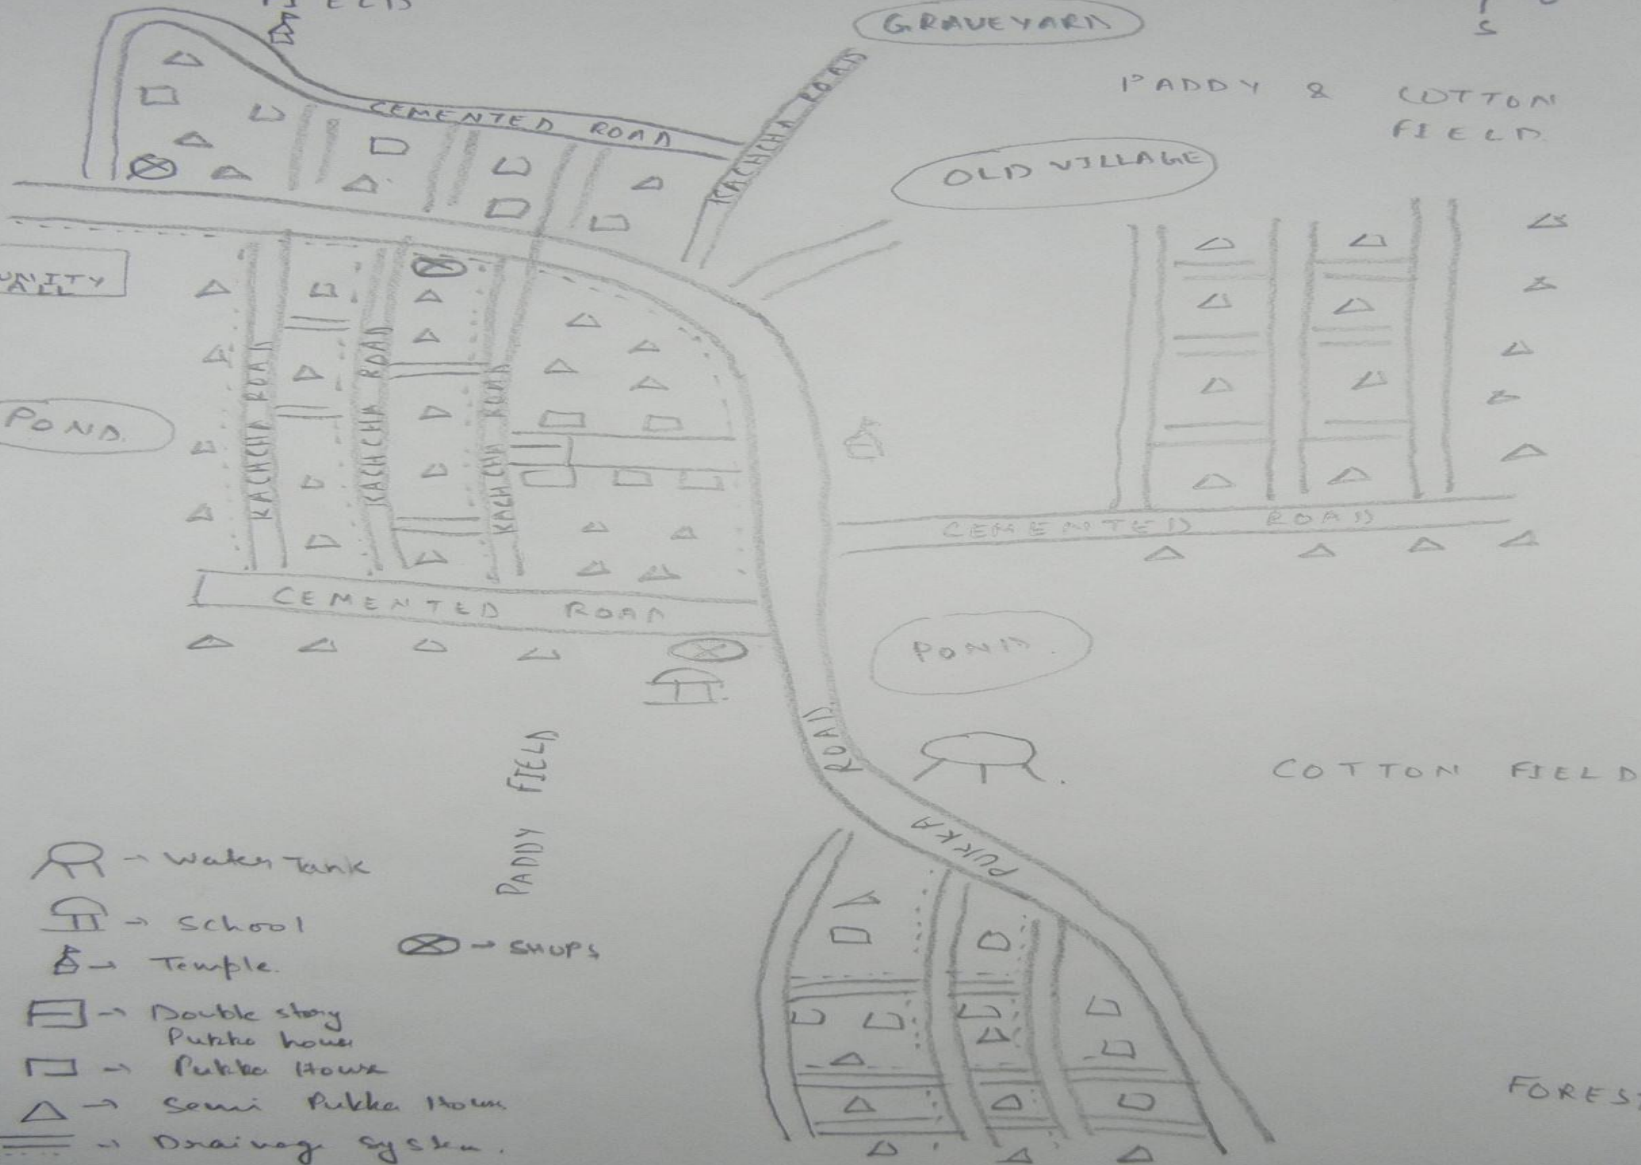 FIELD
GRAVEYARD
S
PADDY & COTTON
FIELD
CEMENTED ROAD
KACHCHA ROAD
OLD VILLAGE
UNITY
ALL
KACHCHA ROAD
KACHCHA ROAD
KACHCHA ROAD
POND
CEMENTED ROAD
CEMENTED ROAD
POND.
ROAD
PUKKA
PADDY FIELD
COTTON FIELD
Water Tank
School
Temple.
SHOPS
Double story
Pukka house
Pukka House
Semi Pukka House
Drainage system.
FORES